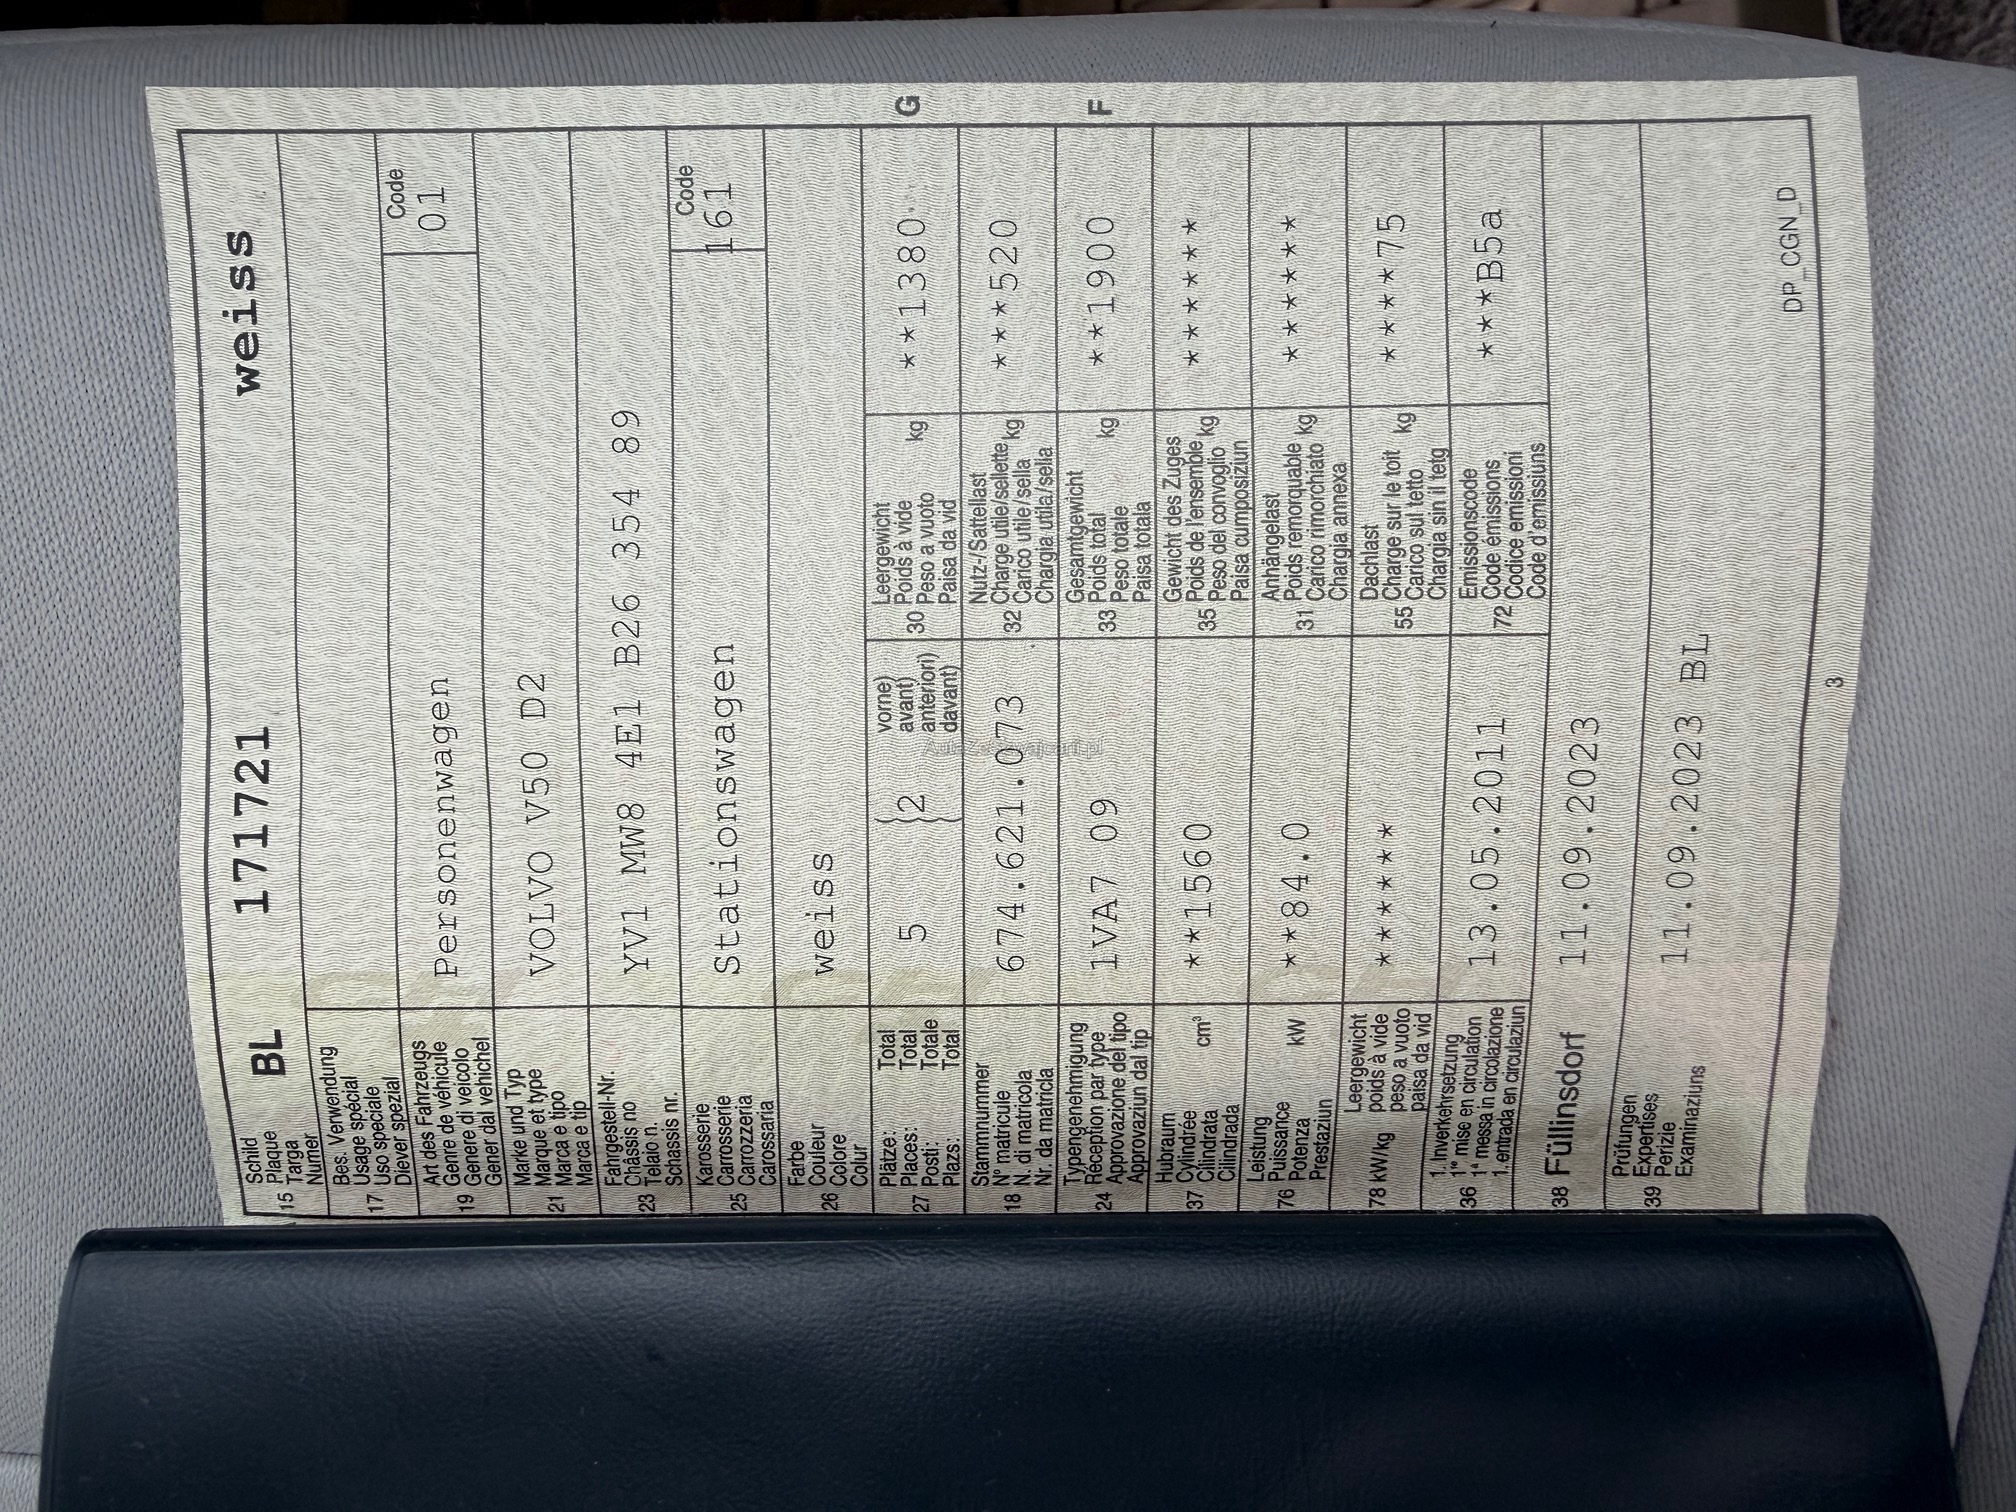 Schild
Plaque
15 Targa
Numer
BL 171721 weiss
Bes. Verwendung
Usage spécial
17 Uso speciale
Diever spezial
Art des Fahrzeugs
Genre de véhicule
19 Genere di veicolo
Gener dal vehichel
Personenwagen
Code
01
Marke und Typ
Marque et type
21 Marca e tipo
Marca e tip
VOLVO V50 D2
Fahrgestell-Nr.
Châssis no
23 Telaio n.
Schassis nr.
YV1 MW8 4E1 B26 354 89
Karosserie
Carrosserie
25 Carrozzeria
Carossaria
Stationswagen
Code
161
Farbe
Couleur
26 Colore
Colur
weiss
Plätze: Total
Places: Total
27 Posti: Totale
Plazs: Total
5
2
vorne)
avant)
anteriori)
davant)
Leergewicht
Poids à vide
30 Peso a vuoto kg
Paisa da vid
**1380
G
Stammnummer
N° matricule
18 N. di matricola
Nr. da matricla
674.621.073
Nutz-/Sattellast
Charge utile/sellette
32 Carico utile/sella kg
Chargia utila/sella
***520
Typengenehmigung
Réception par type
24 Approvazione del tipo
Approvaziun dal tip
1VA7 09
Gesamtgewicht
Poids total
33 Peso totale kg
Paisa totala
**1900
F
Hubraum
Cylindrée
37 Cilindrata cm³
Cilindrada
**1560
Gewicht des Zuges
Poids de l'ensemble
35 Peso del convoglio kg
Paisa cumposiziun
*******
Leistung
Puissance
76 Potenza kW
Prestaziun
**84.0
Anhängelast
Poids remorquable
31 Carico rimorchiato kg
Chargia annexa
*******
Leergewicht
poids à vide
78 kW/kg peso a vuoto
paisa da vid
*******
Dachlast
Charge sur le toit
55 Carico sul tetto kg
Chargia sin il tetg
*****75
1. Inverkehrsetzung
1re mise en circulation
36 1a messa in circolazione
1. entrada en circulaziun
13.05.2011
Emissionscode
Code émissions
72 Codice emissioni
Code d'emissiuns
***B5a
38 Füllinsdorf 11.09.2023
Prüfungen
39 Expertises
Perizie
Examinaziuns
11.09.2023 BL
DP_CGN_D
3